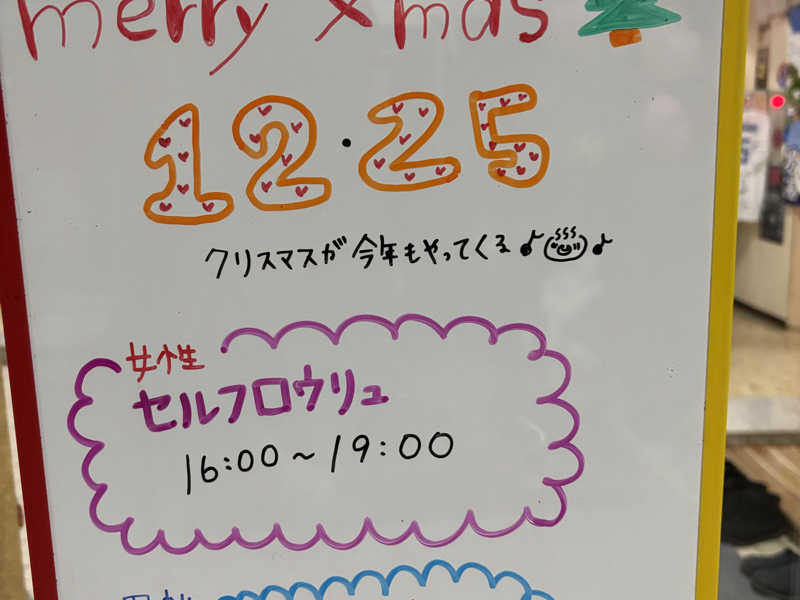 merry xmas
12.25
クリスマスが今年もやってくる♪♪
女性
セルフロウリュ
16:00~19:00